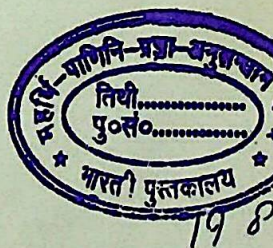 महर्षि-पाणिनि-प्रज्ञा-अनुसन्धान
तिथी..............
पु०सं०..............
★ भारती पुस्तकालय ★
19